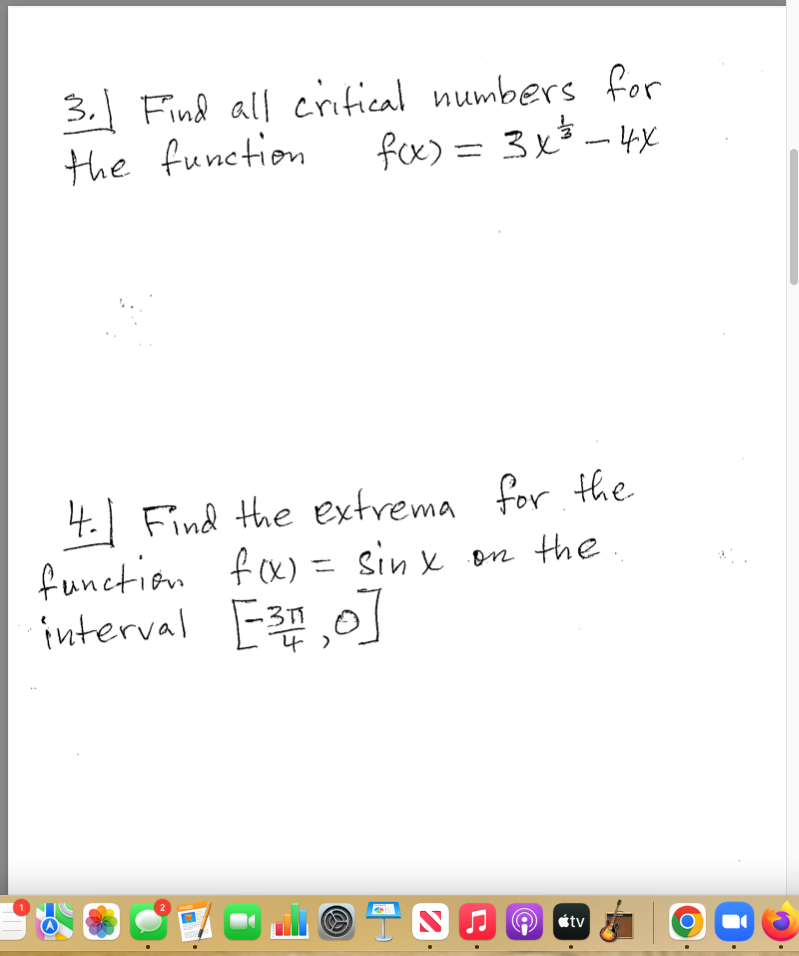 3.] Find all critical numbers for
the function f(x) = 3x^{1/3} - 4x
4.] Find the extrema for the
function f(x) = sin x on the
interval [-3π/4, 0]
1
2
PAGES
tv